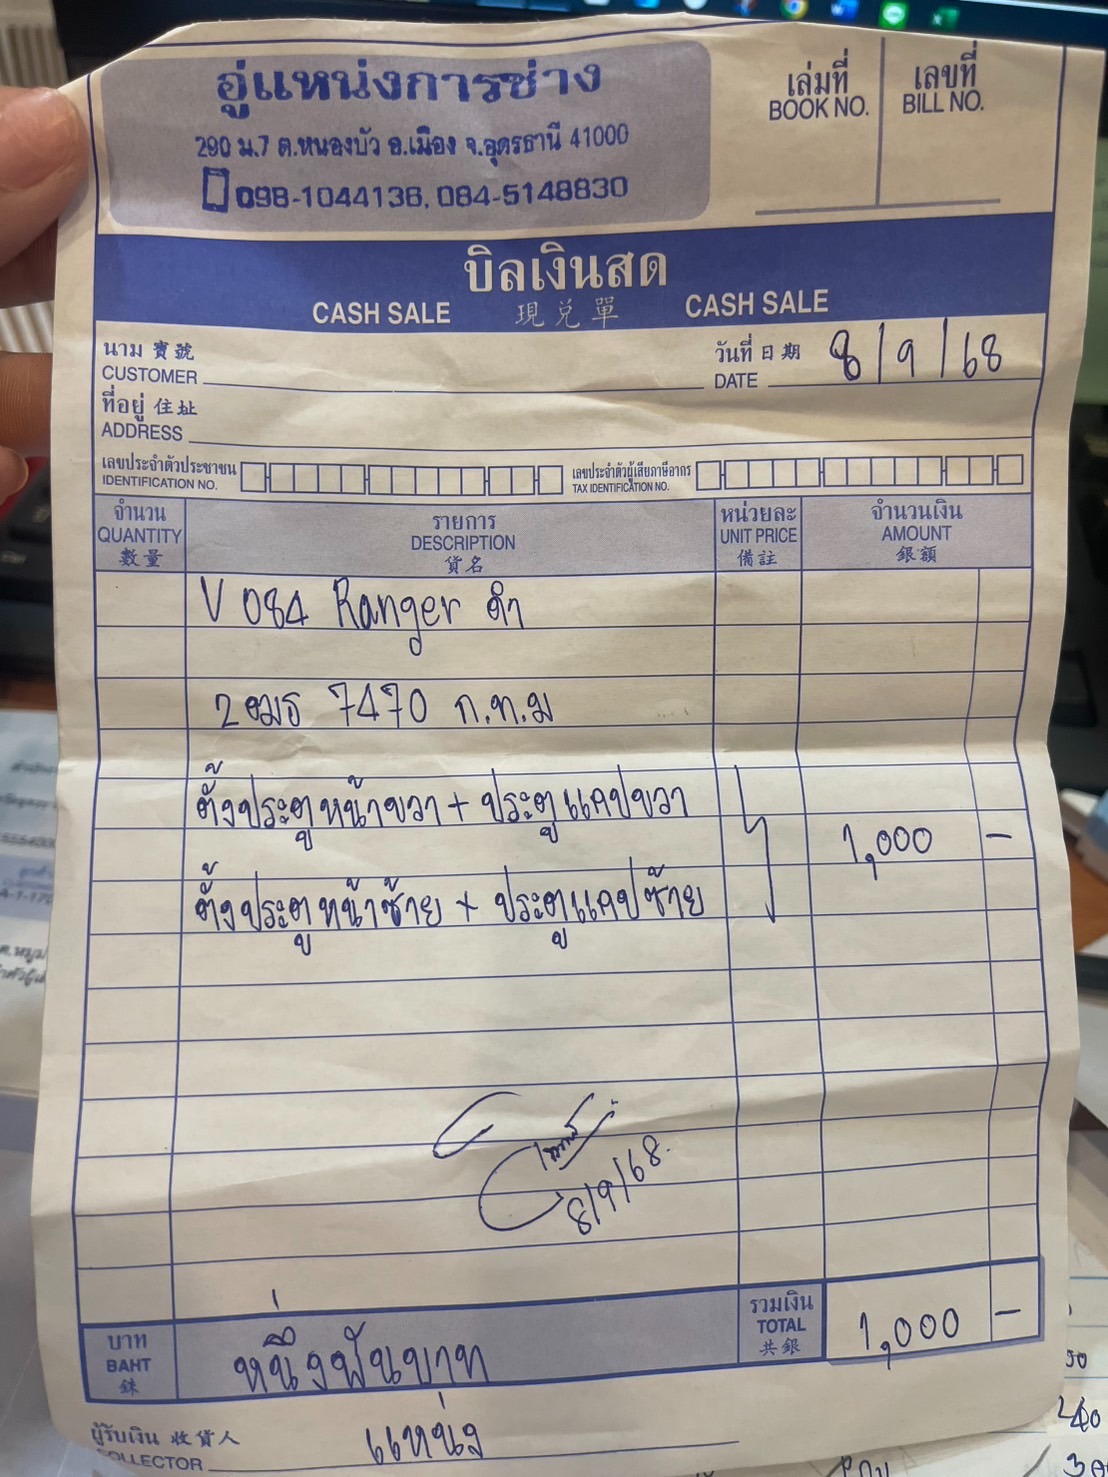 อู่แหน่งการช่าง
290 ม.7 ต.หนองบัว อ.เมือง จ.อุดรธานี 41000
098-1044138, 084-5148830
เล่มที่
BOOK NO.
เลขที่
BILL NO.
บิลเงินสด
CASH SALE 現兌單 CASH SALE
นาม 寶號
CUSTOMER
วันที่ 日期 8/9/68
DATE
ที่อยู่ 住址
ADDRESS
เลขประจำตัวประชาชน
IDENTIFICATION NO.
เลขประจำตัวผู้เสียภาษีอากร
TAX IDENTIFICATION NO.
จำนวน
QUANTITY
數量
รายการ
DESCRIPTION
貨名
หน่วยละ
UNIT PRICE
備註
จำนวนเงิน
AMOUNT
銀額
V 084 Ranger ดำ
2ฒธ 7470 ก.ท.ม
ตั้งประตูหน้าขวา + ประตูแคปขวา
1,000 -
ตั้งประตูหน้าซ้าย + ประตูแคปซ้าย
8/9/68.
บาท
BAHT
銖
หนึ่งพันบาท
รวมเงิน
TOTAL
共銀
1,000 -
ผู้รับเงิน 收貨人 แหน่ง
COLLECTOR